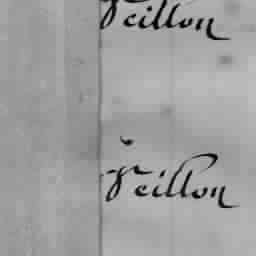 Veillon
Veillon